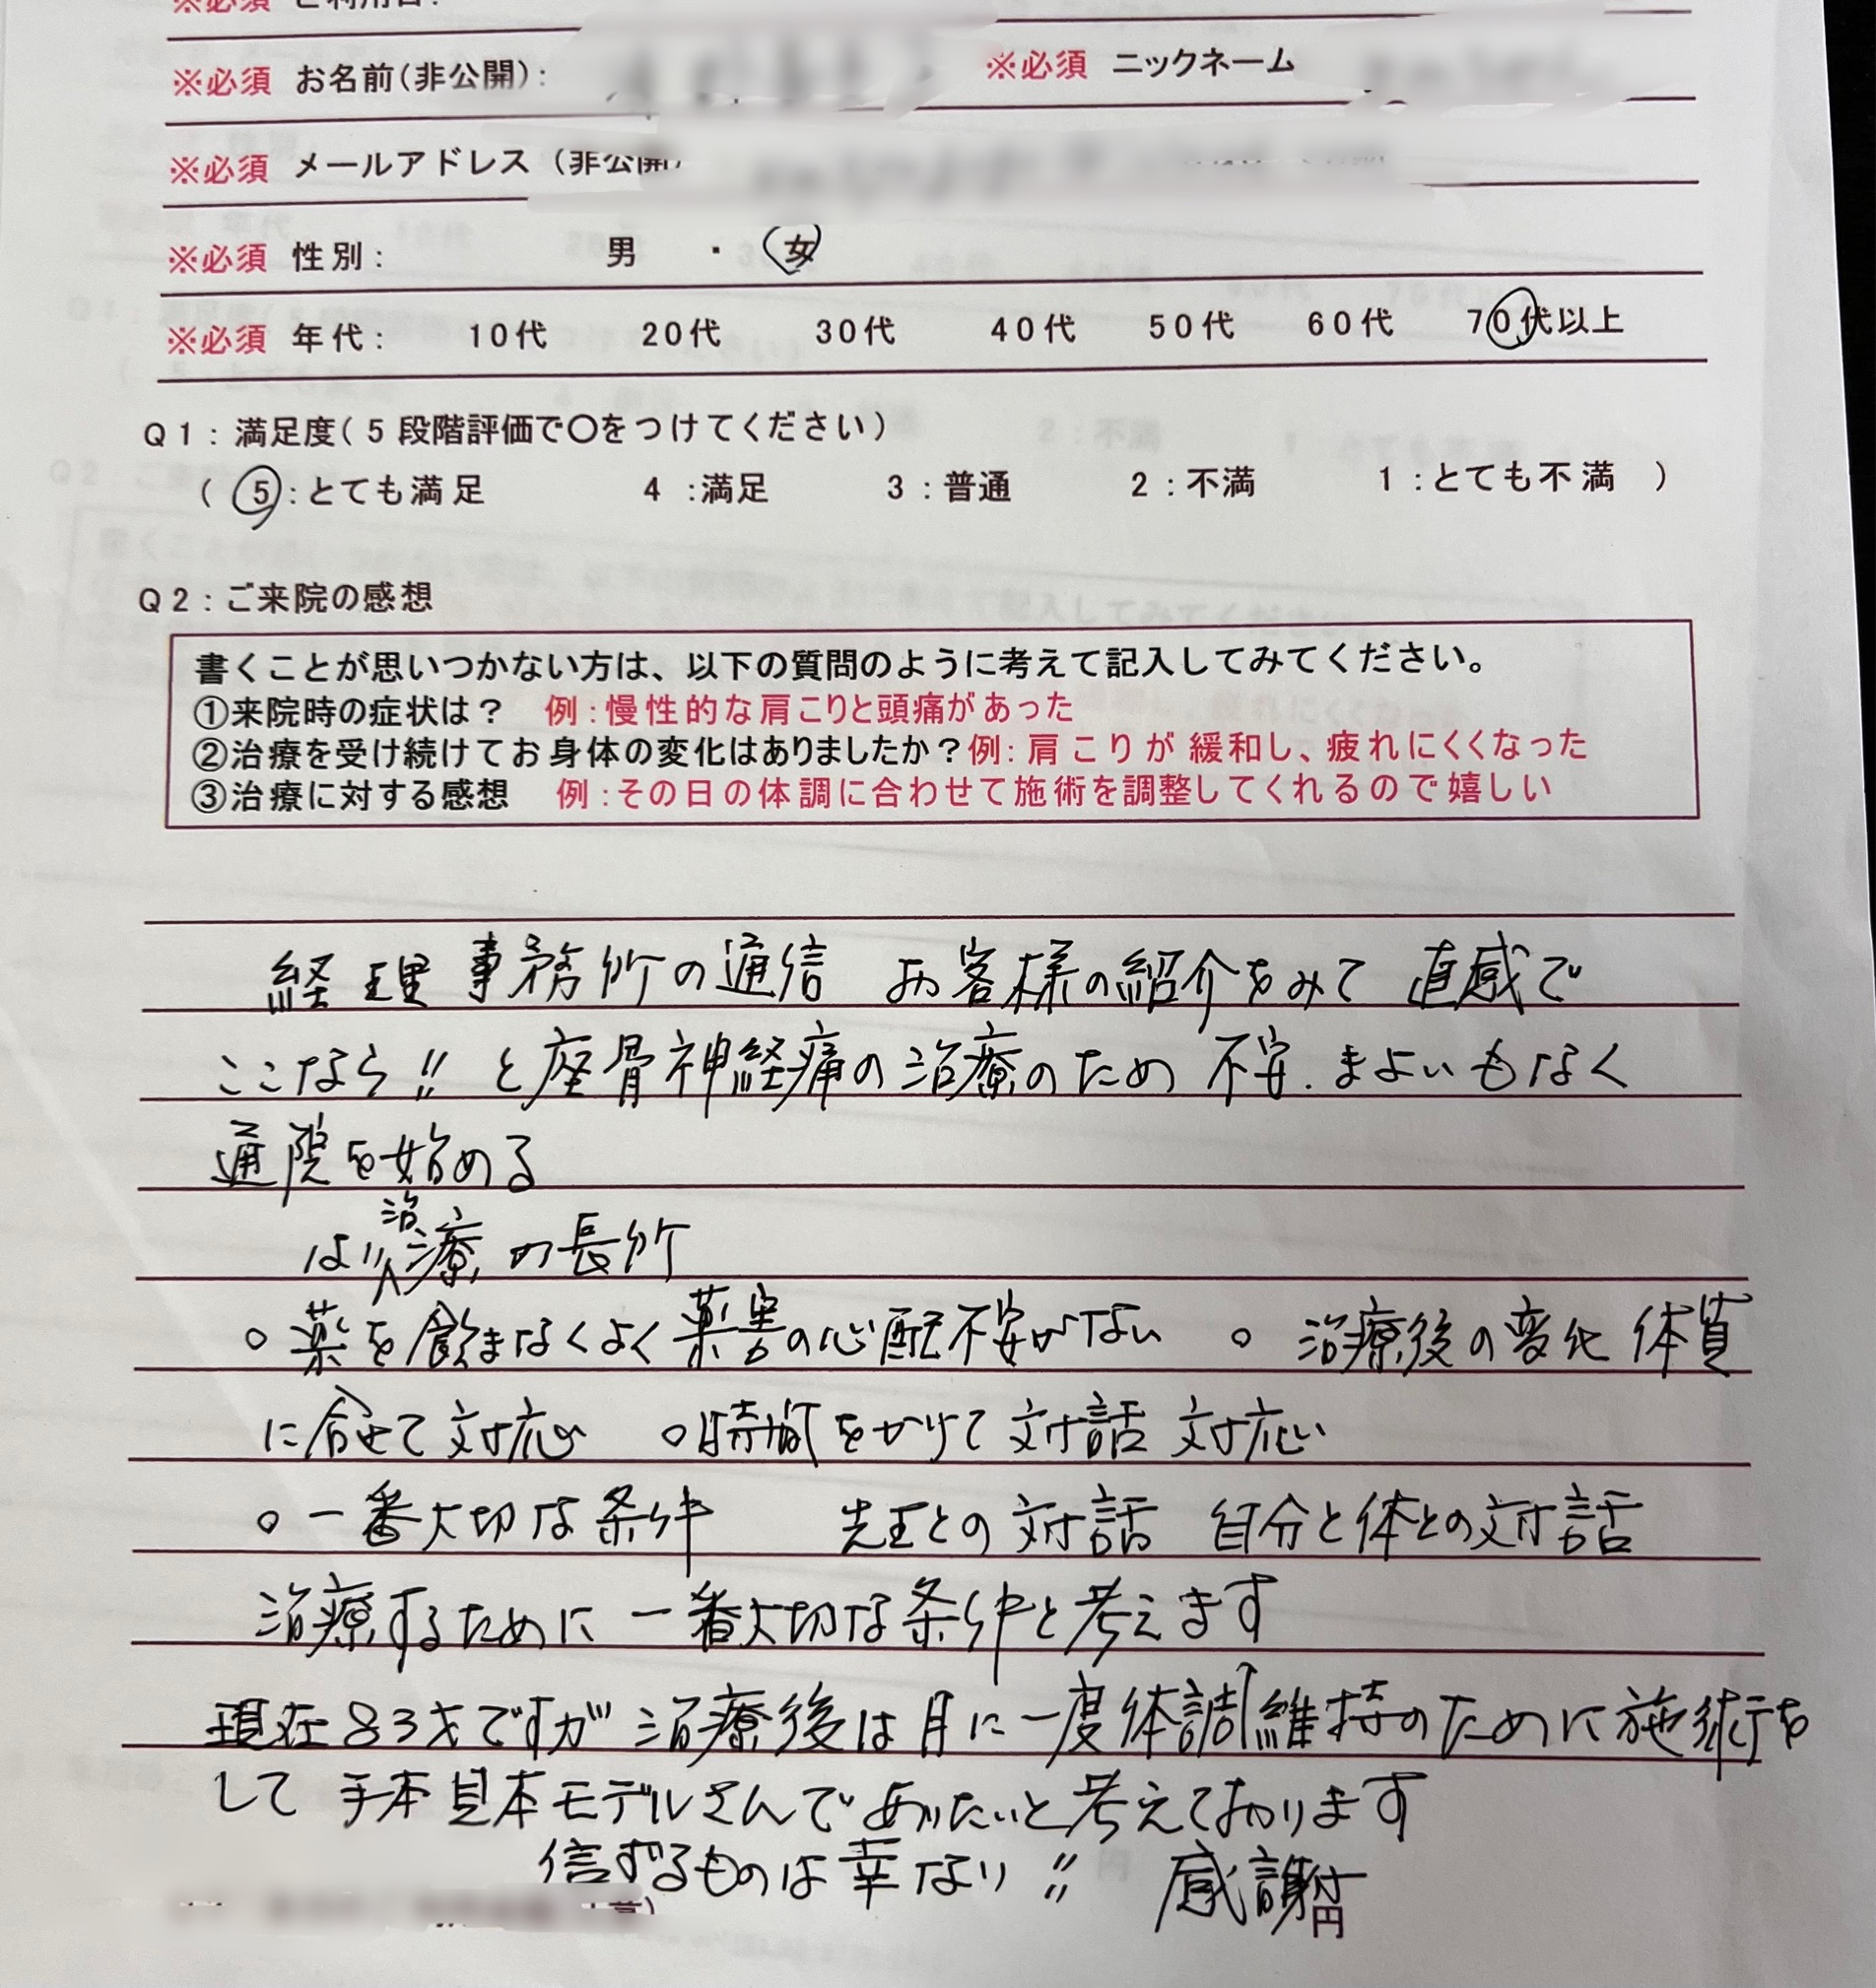 ※必須 ご利用日:
※必須 お名前(非公開): ※必須 ニックネーム
※必須 メールアドレス(非公開)
※必須 性別: 男 ・ 女
※必須 年代: 10代 20代 30代 40代 50代 60代 70代以上
Q1:満足度(5段階評価で〇をつけてください)
( 5:とても満足 4:満足 3:普通 2:不満 1:とても不満 )
Q2:ご来院の感想
書くことが思いつかない方は、以下の質問のように考えて記入してみてください。
①来院時の症状は? 例:慢性的な肩こりと頭痛があった
②治療を受け続けてお身体の変化はありましたか?例:肩こりが緩和し、疲れにくくなった
③治療に対する感想 例:その日の体調に合わせて施術を調整してくれるので嬉しい
経理事務所の通信 お客様の紹介をみて 直感で
ここなら!! と座骨神経痛の治療のため 不安.まよいもなく
通院を始める
はり治療の長所
○薬を飲まなくよく薬害の心配不安がない ○治療後の変化 体質
に合せて対応 ○時間をかけて対話 対応
○一番大切な条件 先生との対話 自分と体との対話
治療するために一番大切な条件と考えます
現在83才ですが 治療後は月に一度体調維持のために施術を
して 手本見本モデルさんでありたいと考えております
信ずるものは幸なり!! 感謝